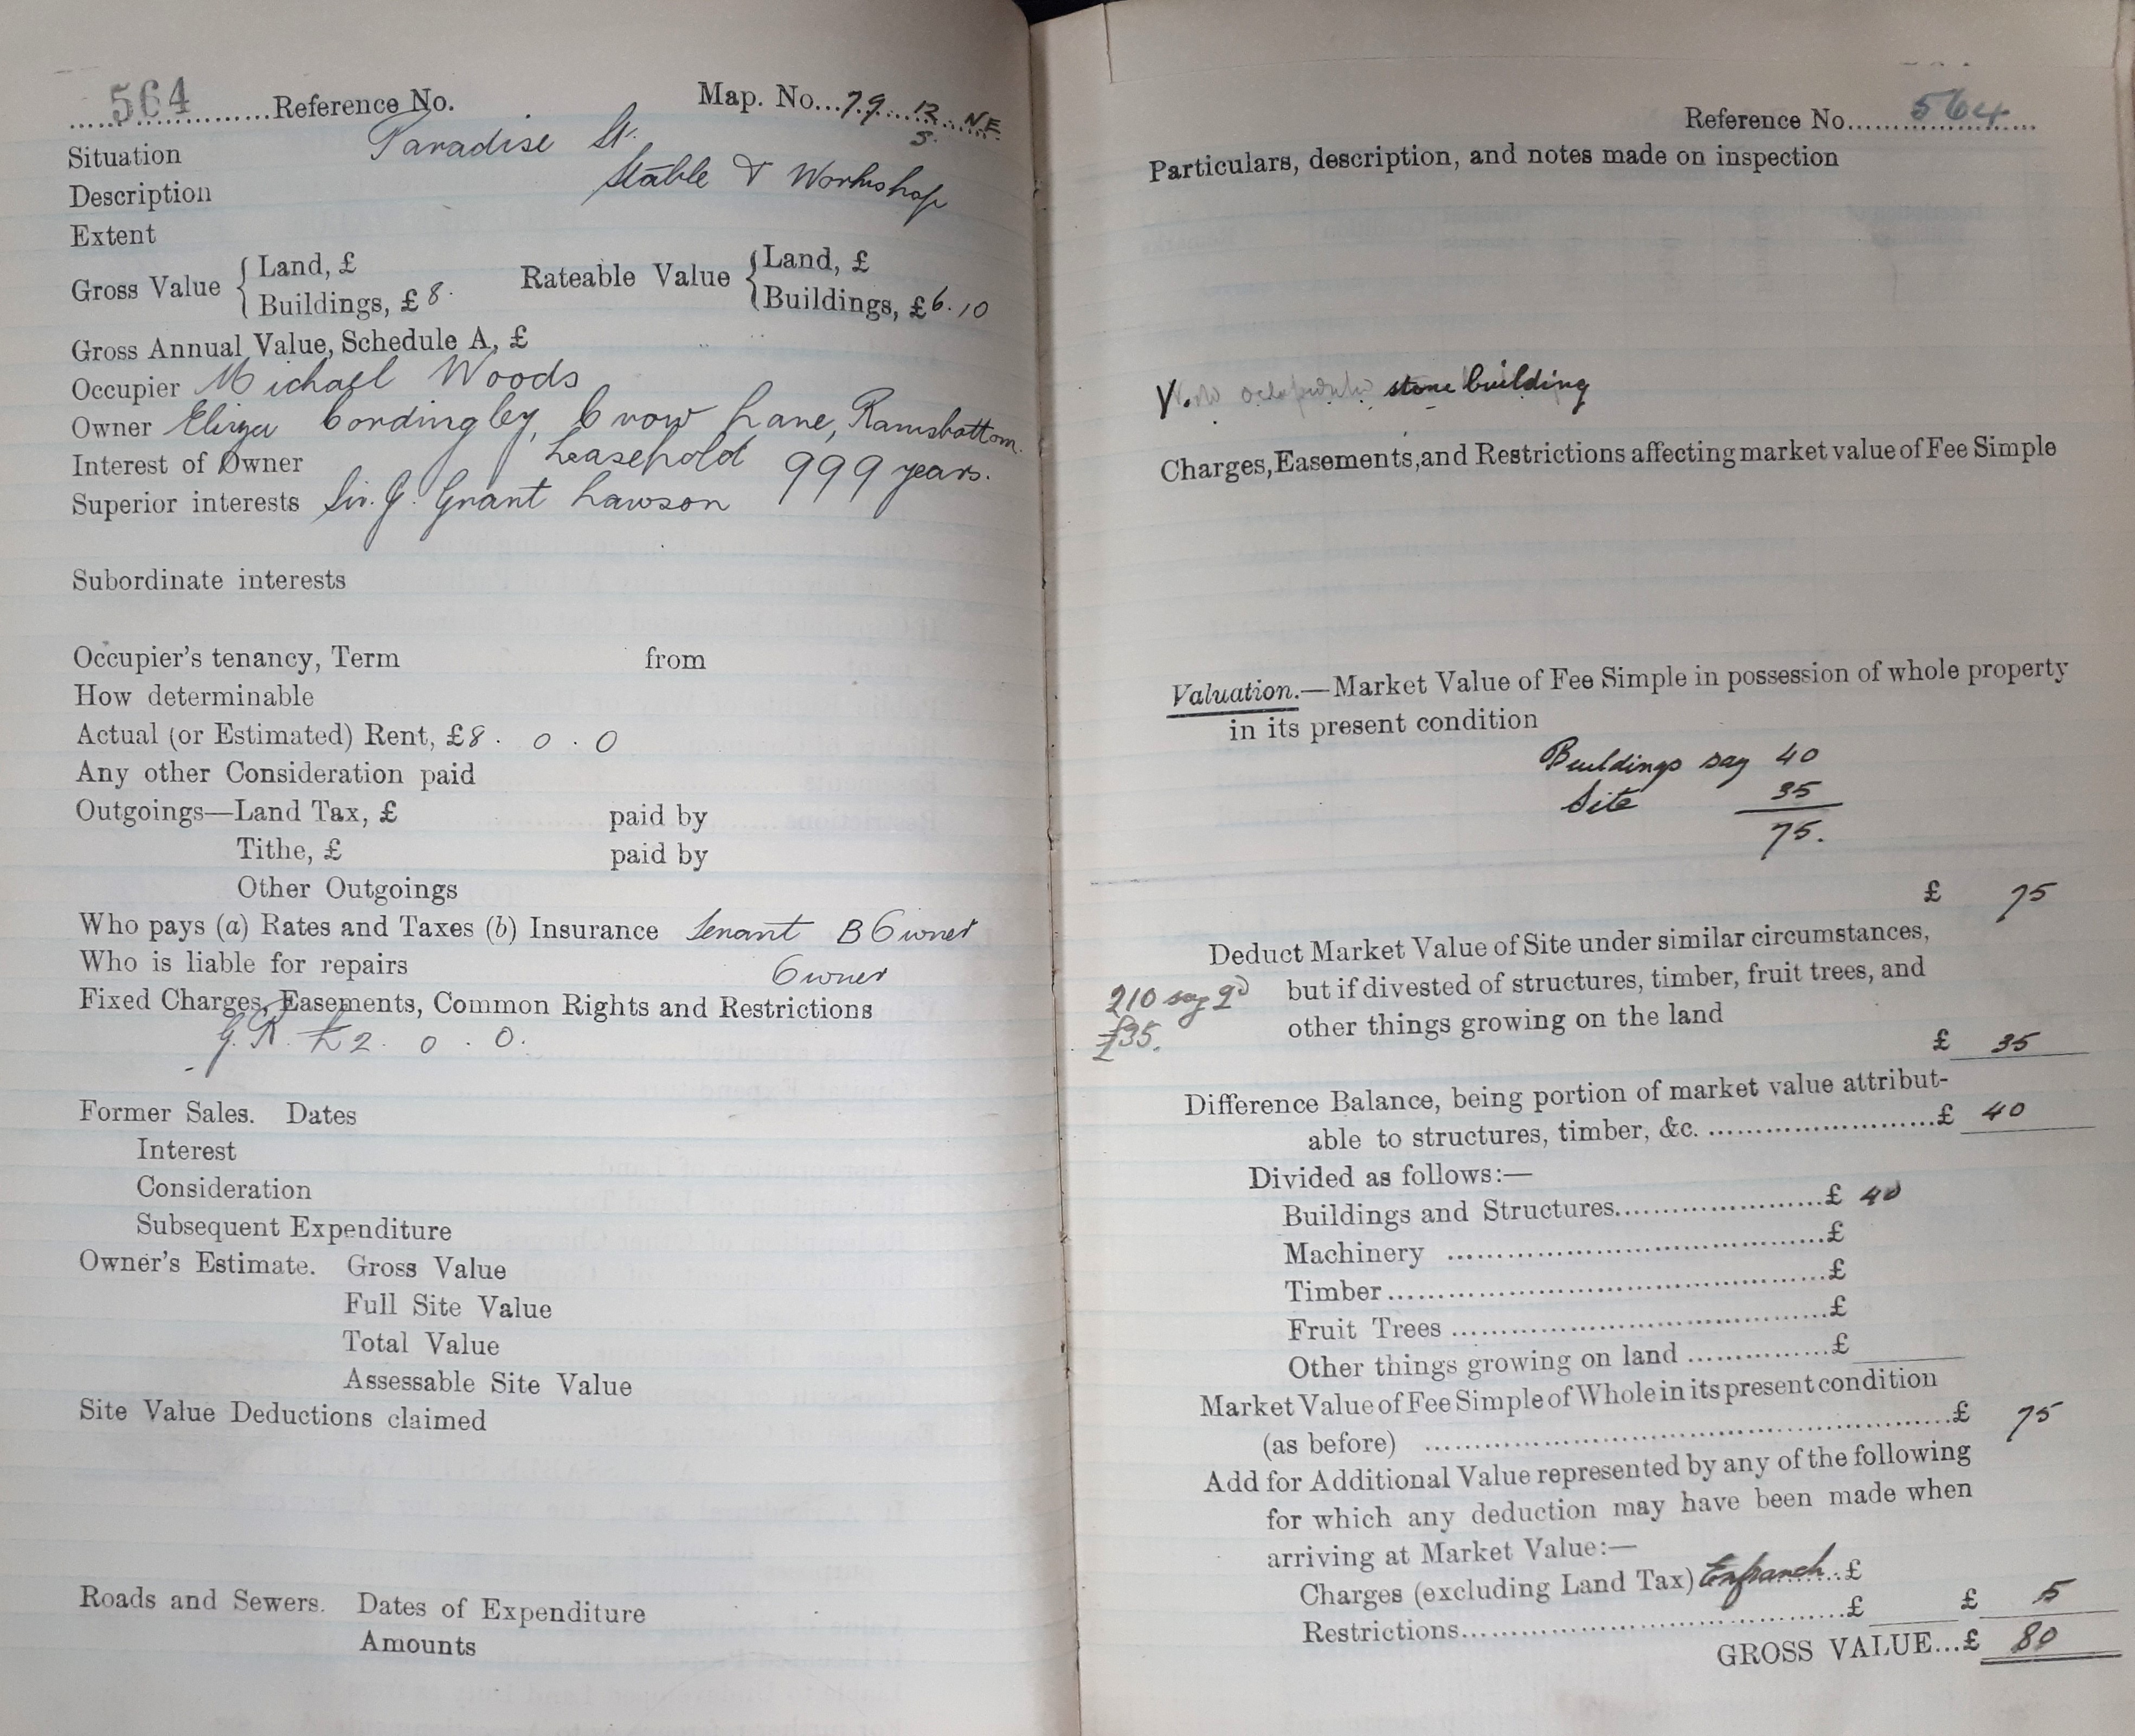 564 Reference No. Map. No... 79 12 N.E.
5.
Situation Paradise St.
Description Stable & Workshop
Extent
Gross Value { Land, £ Rateable Value { Land, £
Buildings, £ 8. Buildings, £ 6.10
Gross Annual Value, Schedule A, £
Occupier Michael Woods
Owner Eliza Cordingley, Crow Lane, Ramsbottom.
Interest of Owner Leasehold 999 years.
Superior interests Sir. J. Grant Lawson
Subordinate interests
Occupier's tenancy, Term from
How determinable
Actual (or Estimated) Rent, £8. 0 . 0
Any other Consideration paid
Outgoings—Land Tax, £ paid by
Tithe, £ paid by
Other Outgoings
Who pays (a) Rates and Taxes (b) Insurance Tenant B Owner
Who is liable for repairs Owner
Fixed Charges, Easements, Common Rights and Restrictions
G.R. £2. 0 . 0.
Former Sales. Dates
Interest
Consideration
Subsequent Expenditure
Owner's Estimate. Gross Value
Full Site Value
Total Value
Assessable Site Value
Site Value Deductions claimed
Roads and Sewers. Dates of Expenditure
Amounts
Reference No. 564
Particulars, description, and notes made on inspection
stone building
Charges, Easements, and Restrictions affecting market value of Fee Simple
Valuation.—Market Value of Fee Simple in possession of whole property
in its present condition
Buildings say 40
Site 35
75.
£ 75
Deduct Market Value of Site under similar circumstances,
210 say 2d but if divested of structures, timber, fruit trees, and
£35. other things growing on the land
£ 35
Difference Balance, being portion of market value attribut-
able to structures, timber, &c. £ 40
Divided as follows:—
Buildings and Structures £ 40
Machinery £
Timber £
Fruit Trees £
Other things growing on land £
Market Value of Fee Simple of Whole in its present condition
(as before) £ 75
Add for Additional Value represented by any of the following
for which any deduction may have been made when
arriving at Market Value:—
Charges (excluding Land Tax) Enfranch £
Restrictions £ £ 5
GROSS VALUE...£ 80